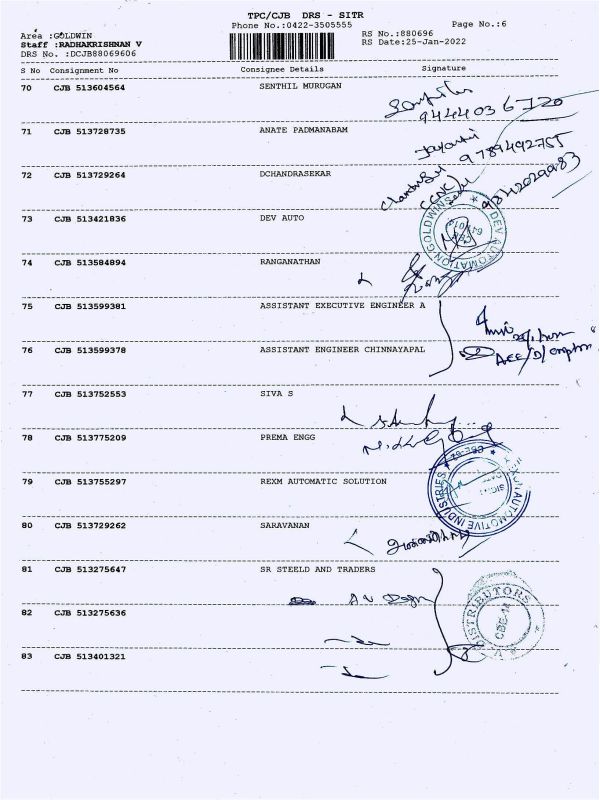 TPC/CJB DRS - SITR
Phone No.:0422-3505555
Page No.:6
Area :GOLDWIN
RS No.:880696
Staff :RADHAKRISHNAN V
RS Date:25-Jan-2022
DRS No. :DCJB88069606
S No Consignment No Consignee Details Signature
70 CJB 513604564 SENTHIL MURUGAN
9444036720
71 CJB 513728735 ANATE PADMANABAM
Jayanthi
9789492755
72 CJB 513729264 DCHANDRASEKAR
9842029983
73 CJB 513421836 DEV AUTO
DEV AUTOMATION GOLDWINS
74 CJB 513584894 RANGANATHAN
75 CJB 513599381 ASSISTANT EXECUTIVE ENGINEER A
76 CJB 513599378 ASSISTANT ENGINEER CHINNAYAPAL
AEE/D/
77 CJB 513752553 SIVA S
78 CJB 513775209 PREMA ENGG
79 CJB 513755297 REXM AUTOMATIC SOLUTION
AUTOMOTIVE INDUSTRIES
CBE-62
80 CJB 513729262 SARAVANAN
81 CJB 513275647 SR STEELD AND TRADERS
DISTRIBUTORS
CBE-14
82 CJB 513275636
83 CJB 513401321